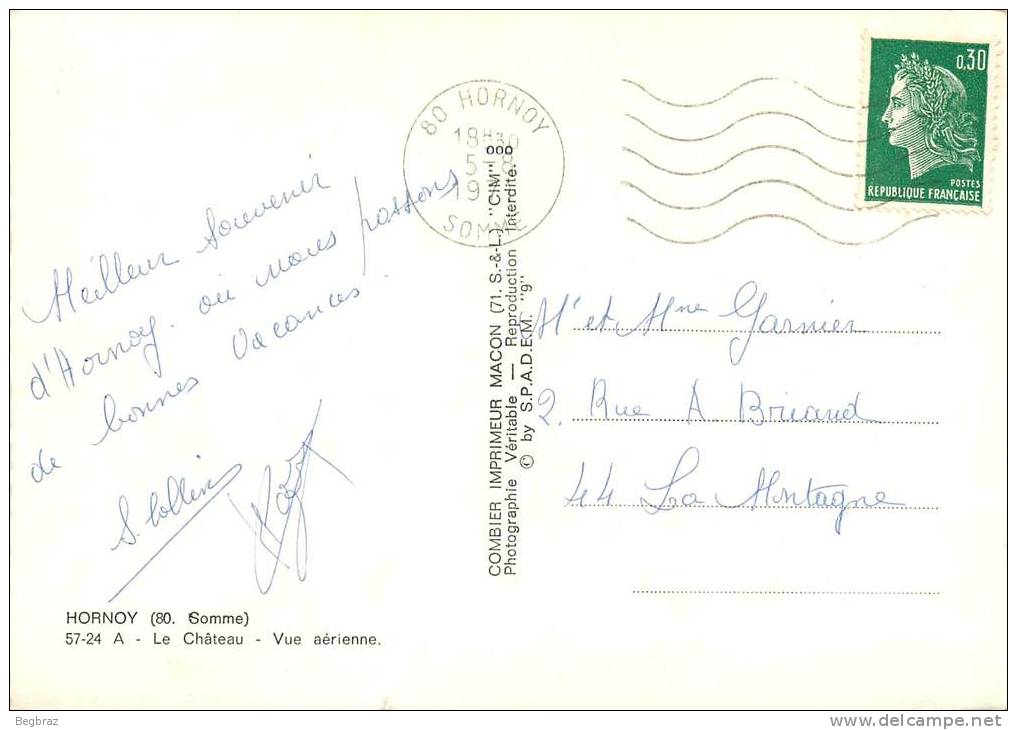 80 HORNOY
18H30
5-8
19
SOMME
0,30
POSTES
REPUBLIQUE FRANÇAISE
Meilleur Souvenir
d'Hornoy. où nous passons
de bonnes Vacances.
S. Collin
COMBIER IMPRIMEUR MACON (71. S.-&-L.) "CIM"
Photographie Véritable — Reproduction Interdite.
© by S.P.A.D.E.M. "9"
Mr et Mme Garnier
2. Rue A Briand
44 La Montagne
HORNOY (80. Somme)
57-24 A - Le Château - Vue aérienne.
Begbraz
www.delcampe.net